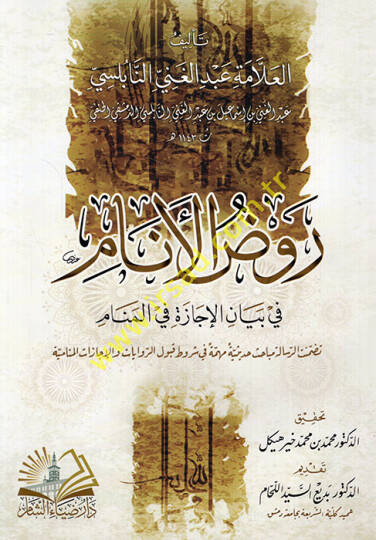 تأليف
العلامة عبد الغني النابلسي
عبد الغني بن إسماعيل بن عبد الغني النابلسي الدمشقي الحنفي
ت ١١٤٣ هـ
روض الأنام
في بيان الإجازة في المنام
تضمنت الرسالة مباحث حديثية مهمة في شروط قبول الروايات والإجازات المنامية
تحقيق
الدكتور محمد بن محمد خير هيكل
تقديم
الدكتور بديع السيد اللحام
عميد كلية الشريعة بجامعة دمشق
دار ضياء الشام